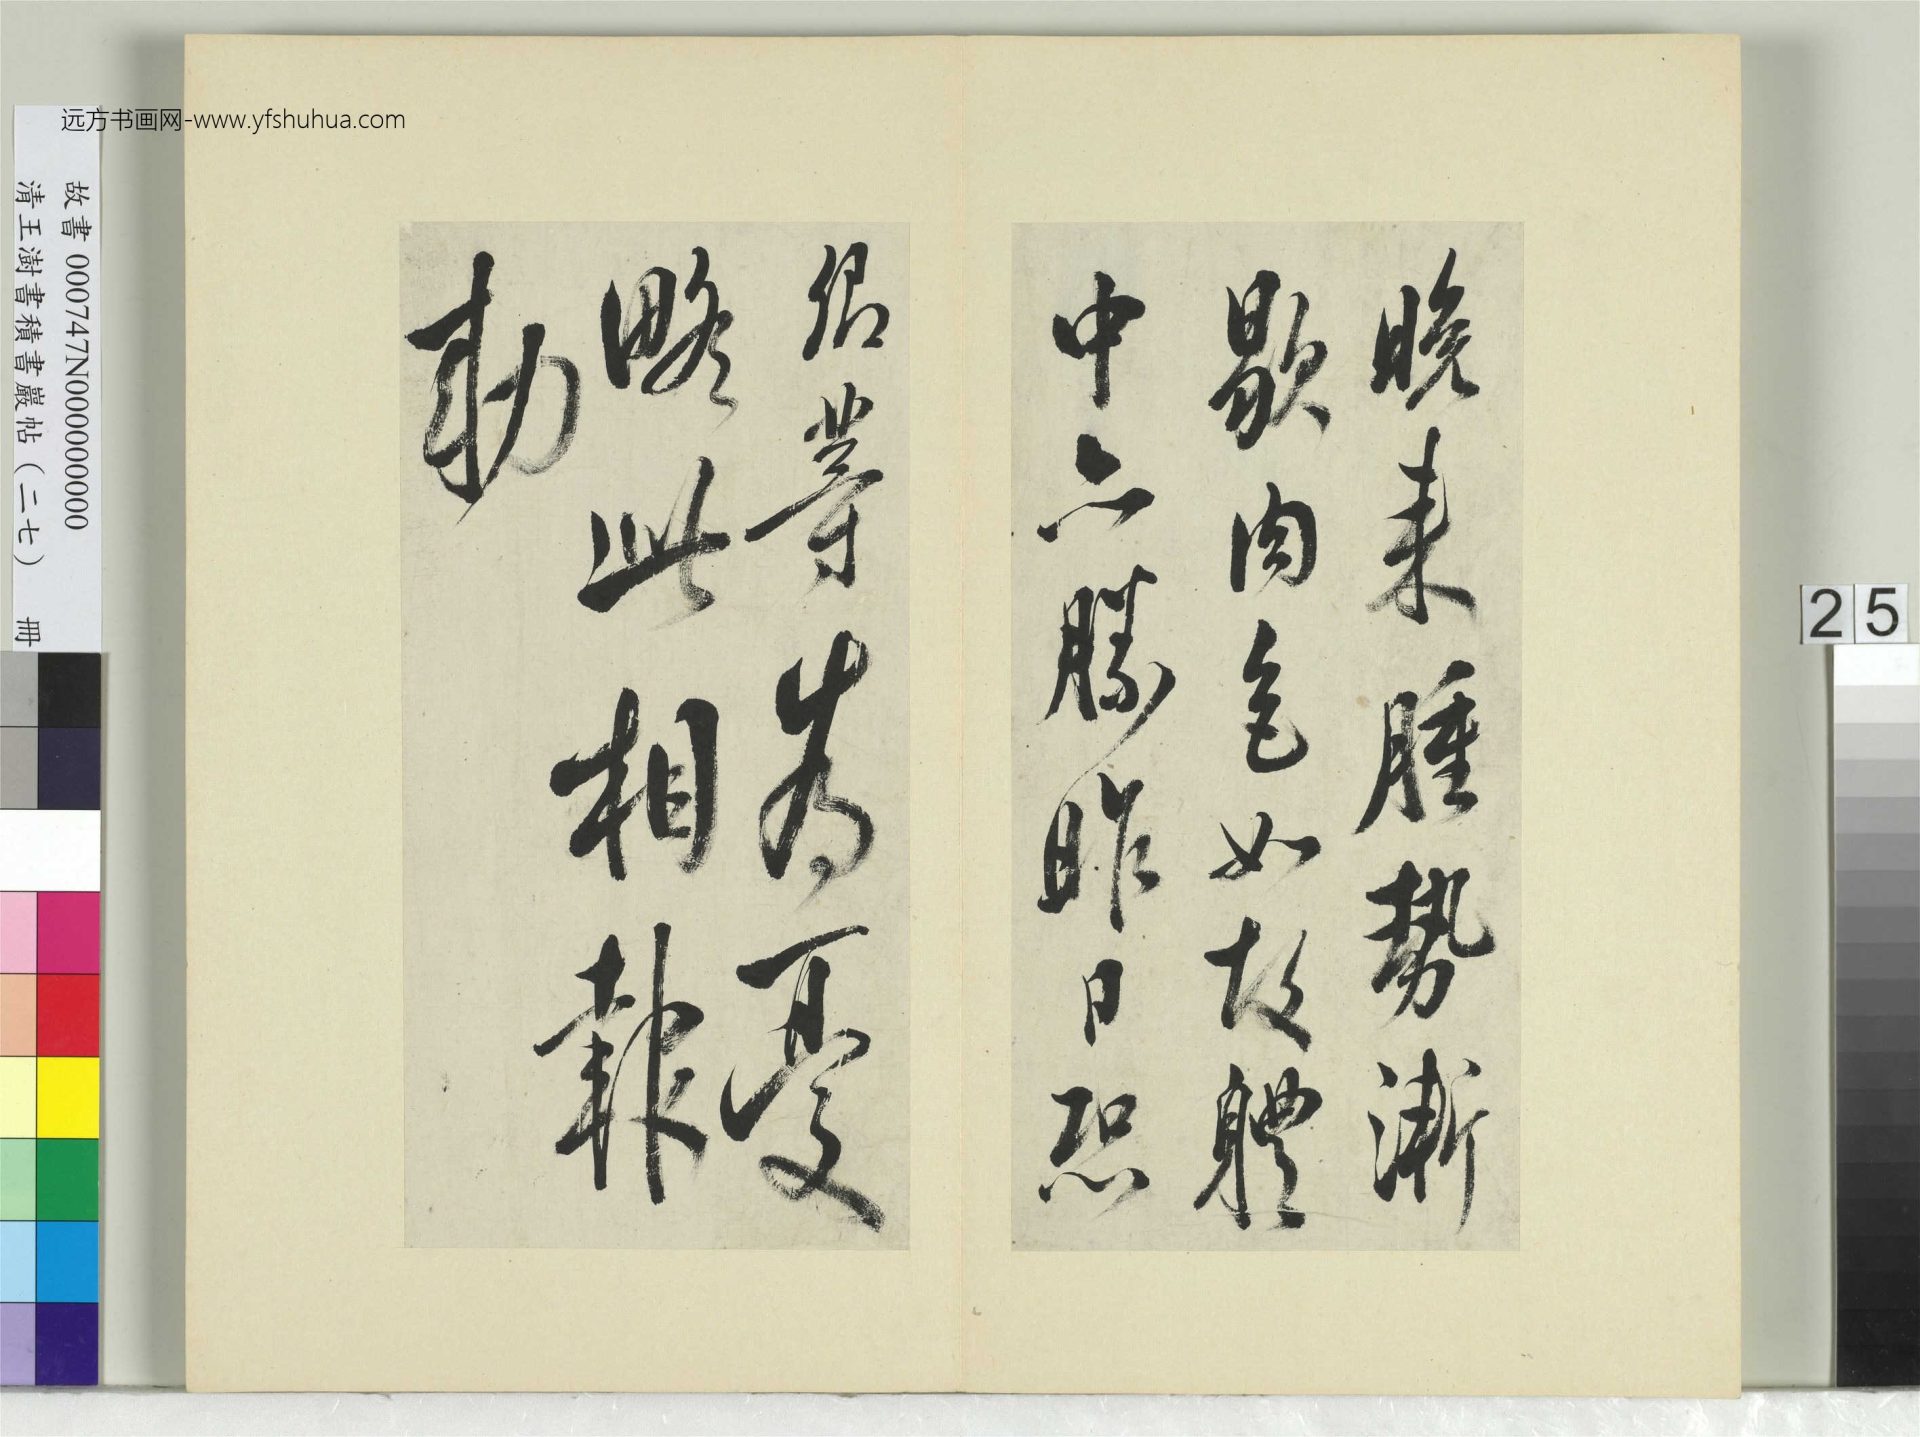 晚来腫勢漸
歇肉色如故體
中亦勝昨日恐
卿等為憂
略此相報
勅
远方书画网-www.yfshuhua.com
故書 000747N000000000
清王澍書積書巖帖(二七) 冊
25